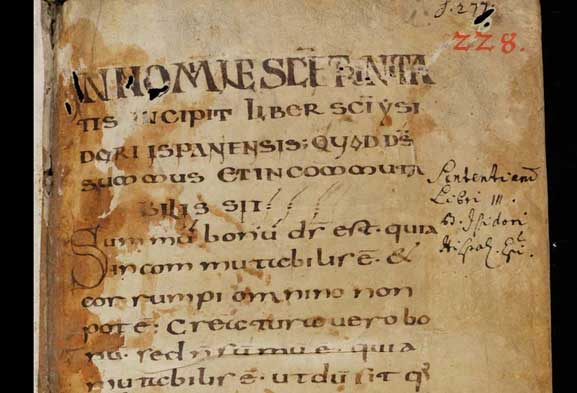 S. 277.
228.
IN NOMINE SCE TRINITA
TIS INCIPIT LIBER SCI YSI
DORI ISPANENSIS; QUOD DS
SUMMUS ET INCOMMUTA
BILIS SIT:
Summu bonu ds est. quia
incommutabilis e. &
corrumpi omnino non
pot e; Creatura vero bo
nu. sed n sumu e. quia
mutabilis e. ut du sit q
Sententiarum
Libri III.
B. Isidori
Hispal. Epi.